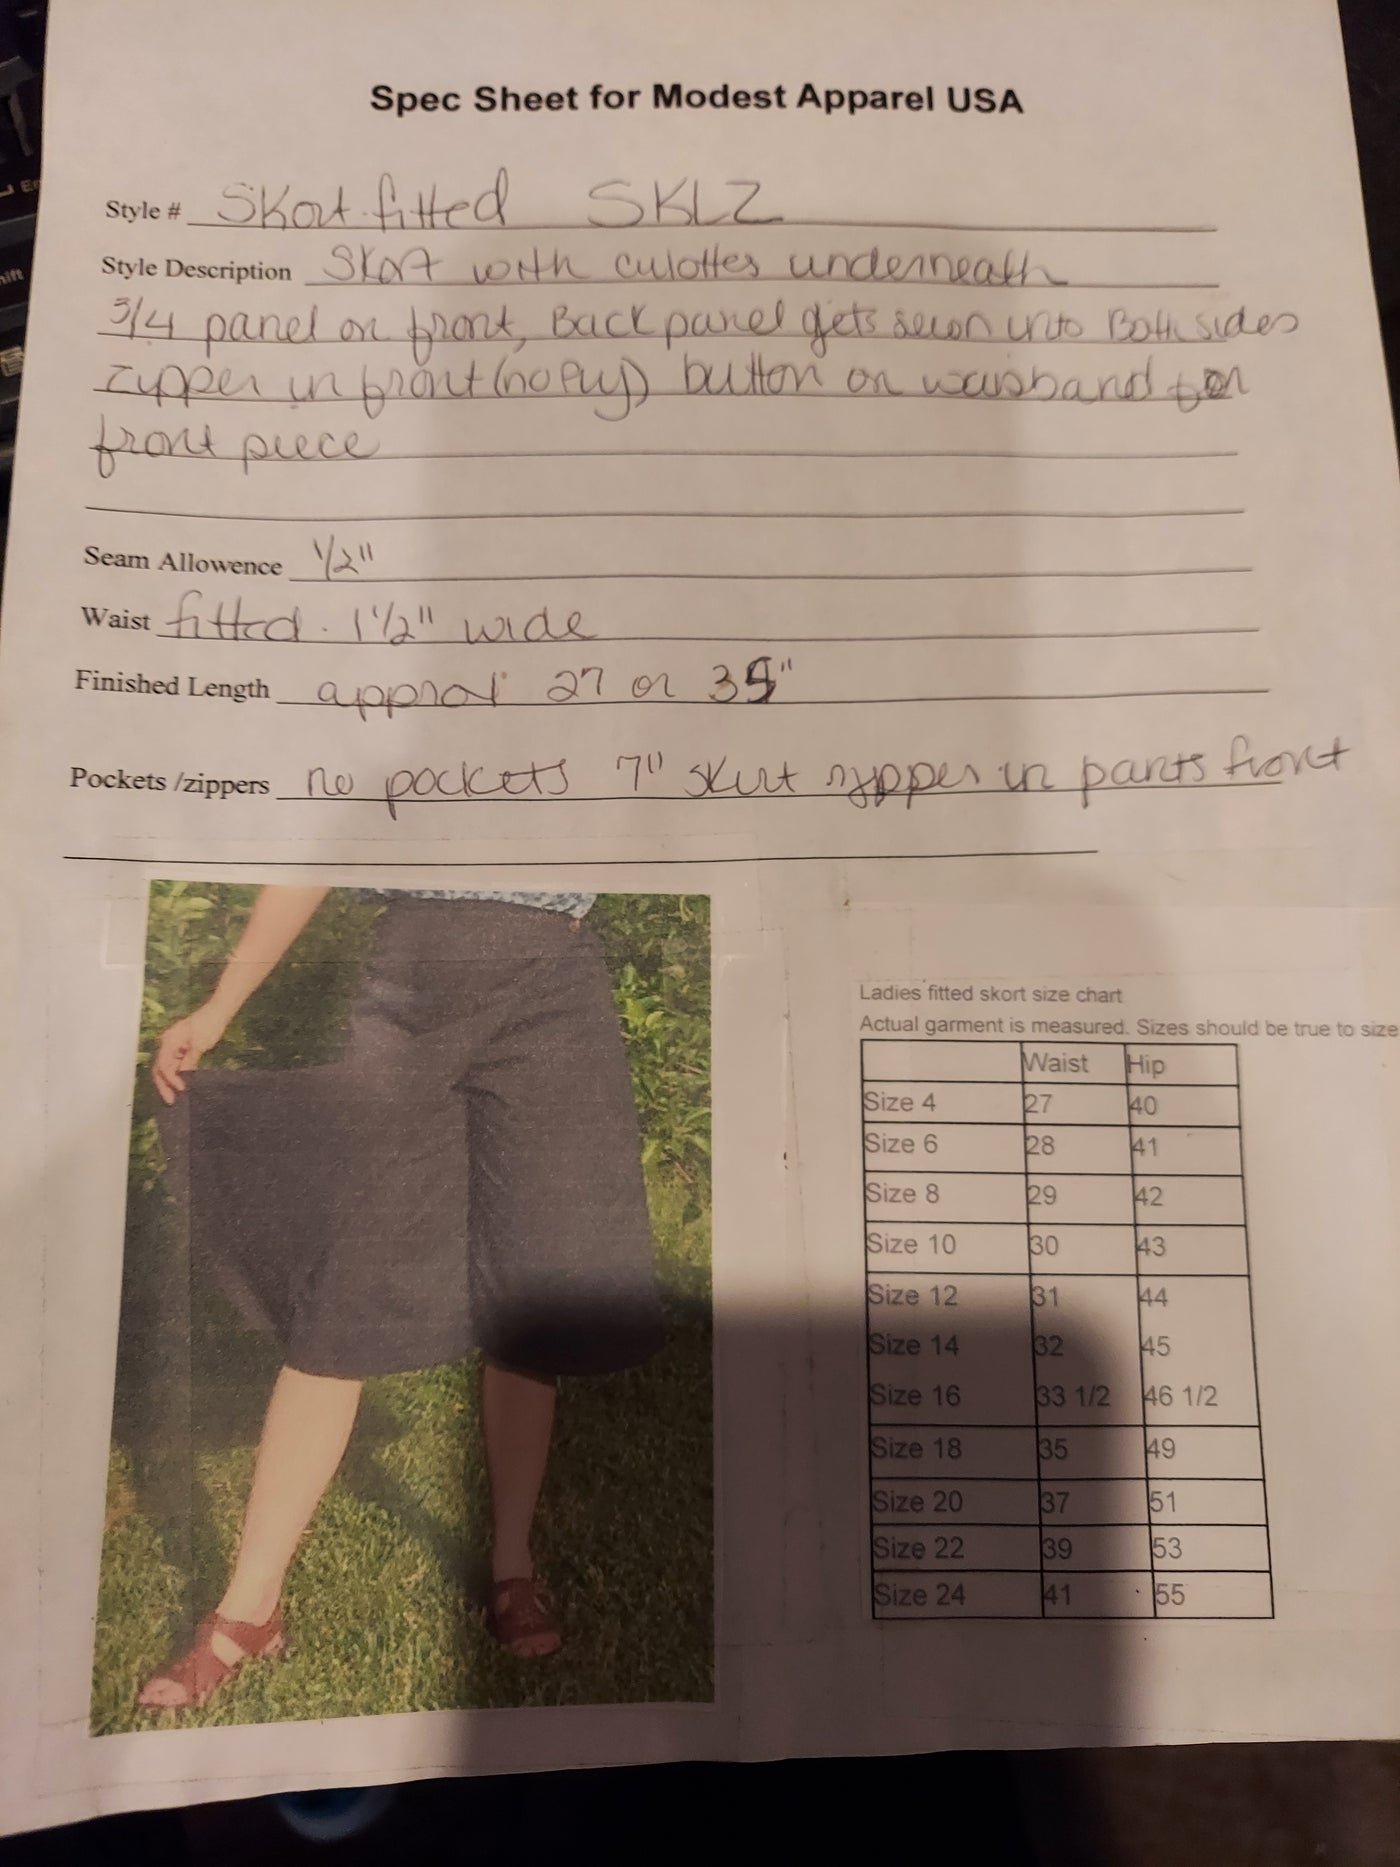 Spec Sheet for Modest Apparel USA
Style # Skort fitted SKLZ
Style Description Skort with culottes underneath
3/4 panel on front, Back panel gets sewn into Both sides
zipper in front (no fly) button on waisband for
front piece
Seam Allowence 1/2"
Waist fitted. 1 1/2" wide
Finished Length approx 27 or 35"
Pockets /zippers no pockets 7" skirt zipper in pants front
Ladies fitted skort size chart
Actual garment is measured. Sizes should be true to size
Waist Hip
Size 4 27 40
Size 6 28 41
Size 8 29 42
Size 10 30 43
Size 12 31 44
Size 14 32 45
Size 16 33 1/2 46 1/2
Size 18 35 49
Size 20 37 51
Size 22 39 53
Size 24 41 55